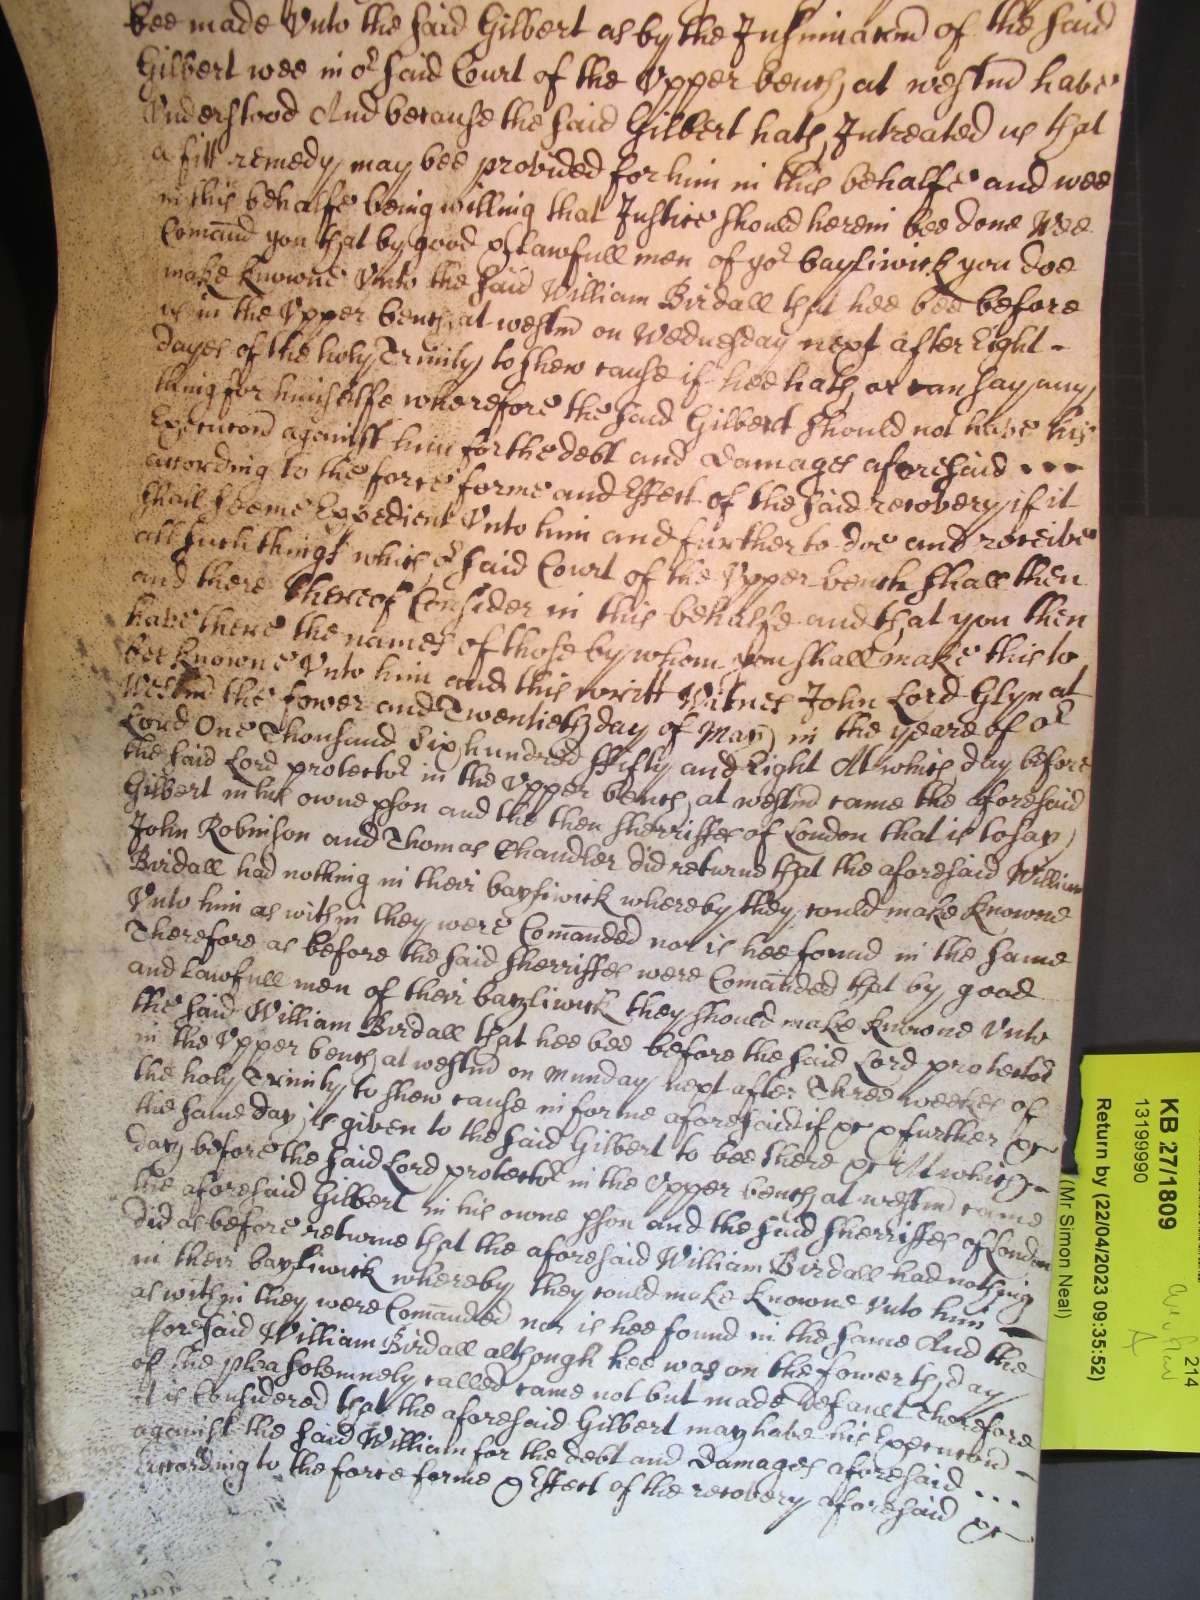 bee made Vnto the said Gilbert as by the Insinuacon of the said
Gilbert wee in or said Court of the Vpper bench at westm̃ have
Vnderstood And because the said Gilbert hath Intreated us that
a fitt remedy may bee provided for him in this behalfe and wee
in this behalfe being willing that Justice should herein bee done Wee
Com̃and you that by good & Lawfull men of yor bayliwick you doe
make knowne Vnto the said William Birdall that hee bee before
us in the Vpper bench at westm̃ on Wednesday next after Eight -
dayes of the holy Trinity to shew cause if hee hath or can say any
thing for himselfe wherefore the said Gilbert should not have his
Execucon against him for the debt and Damages aforesaid ...
according to the force forme and Effect of the said recovery if it
shall seeme Expedient Vnto him and further to doe and receive
all such things which or said Court of the Vpper bench shall then
and there thereof Consider in this behalfe and that you then
have there the names of those by whom you shall make this to
bee knowne Vnto him and this writt Witnes John Lord Glyn at
Westm̃ the fower and Twentieth day of May in the yeare of or
Lord One Thousand Six hundred ffifty and Eight At which day before
the said Lord protector in the Vpper bench at westm̃ came the aforesaid
Gilbert in his owne pson and the then Sherriffes of London that is to say
John Robinson and Thomas Chandler did returne that the aforesaid William
Birdall had nothing in their bayliwick whereby they could make knowne
Vnto him as within they were Com̃anded nor is hee found in the same
Therefore as before the said Sherriffes were Com̃anded that by good
and Lawfull men of their bayliwick they should make knowne Vnto
the said William Birdall that hee bee before the said Lord protector
in the Vpper bench at westm̃ on munday next after Three weekes of
the holy Trinity to shew cause in forme aforesaid if &c & further &c
the same day is given to the said Gilbert to bee there &c At which -
day before the said Lord protector in the Vpper bench at westm̃ came
the aforesaid Gilbert in his owne pson and the said Sherriffes of London
did as before returne that the aforesaid William Birdall had nothing
in their bayliwick whereby they could make knowne Vnto him -
as within they were Com̃anded nor is hee found in the same And the
aforesaid William Birdall although hee was on the fowerth day
of the plea solemnely called came not but made Default Therefore
It is Considered that the aforesaid Gilbert may have his Execucon -
against the said William for the debt and Damages aforesaid ...
According to the force forme & Effect of the recovery aforesaid &c
214
KB 27/1809
13199990
Return by (22/04/2023 09:35:52)
(Mr Simon Neal)